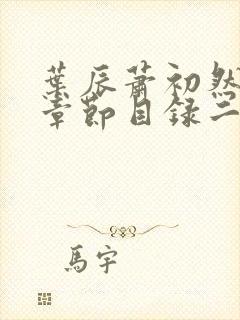 葉辰蕭初然
章節目録二
馬宇